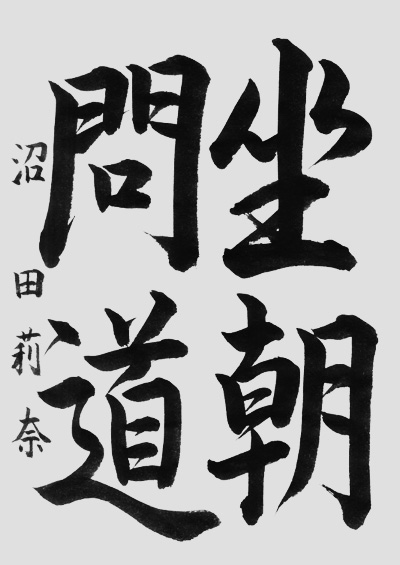 坐朝
問道
沼田莉奈